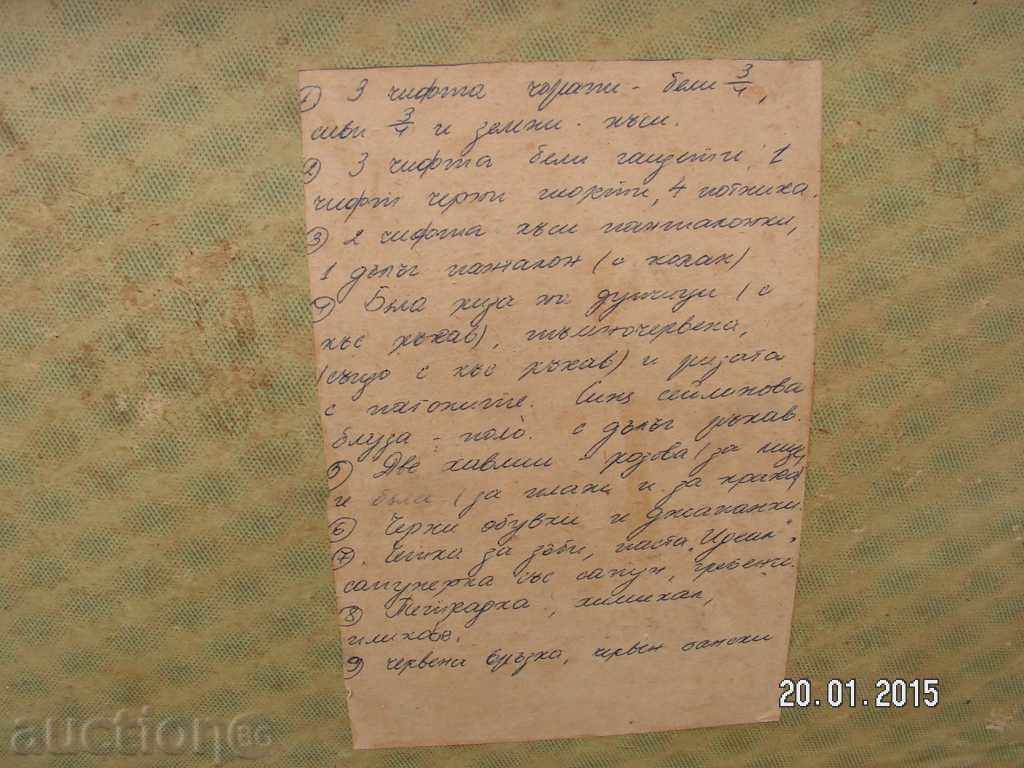 ① 3 чифта чорапи - бели 3/4,
сиви 3/4 и земни - къси.
② 3 чифта бели гащета, 1
чифт черни шорти, 4 потника.
③ 2 чифта къси панталонки,
1 дълъг панталон (с колан)
④ Бяла риза на (с
къс ръкав), тъмночервена,
(също с къс ръкав) и ризата
с пагоните. Синя
блуза - поло с дълъг ръкав.
⑤ Две хавлии - розова (за лице
и бяла (за плаж и за крака)
⑥ Черни обувки и джапанки.
⑦ Четка за зъби, паста "Идеал",
сапунерка със сапун, гребенче.
⑧ Тетрадка, химикал,
пликове.
9) червена връзка, червен бански
auctionBG
20.01.2015